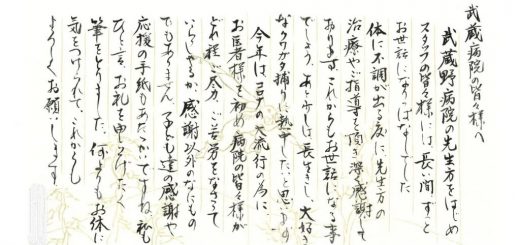 武蔵病院の皆々様へ
武蔵野病院の先生方をはじめ
スタッフの皆々様には長い間ずっと
お世話になりっぱなしでした
体に不調が出る度に先生方の
治療やご指導を頂き深く感謝して
おります。これからもお世話になる事
でしょう。あと少しは長生きし、大好き
なクワガタ捕りに熱中したいと思います
今年は、コロナの大流行の為に
お医者様を初め病院の皆々様が
どれ程ご尽力、ご苦労をなさって
いらっしゃるか感謝以外のなにもの
でもありません。子ども達の感謝や
応援の手紙もあたたかいですね、私も
ひと言、お礼を申し上げたく
筆をとりました。何よりもお体に
気をつけられて、これからも
よろしくお願いします